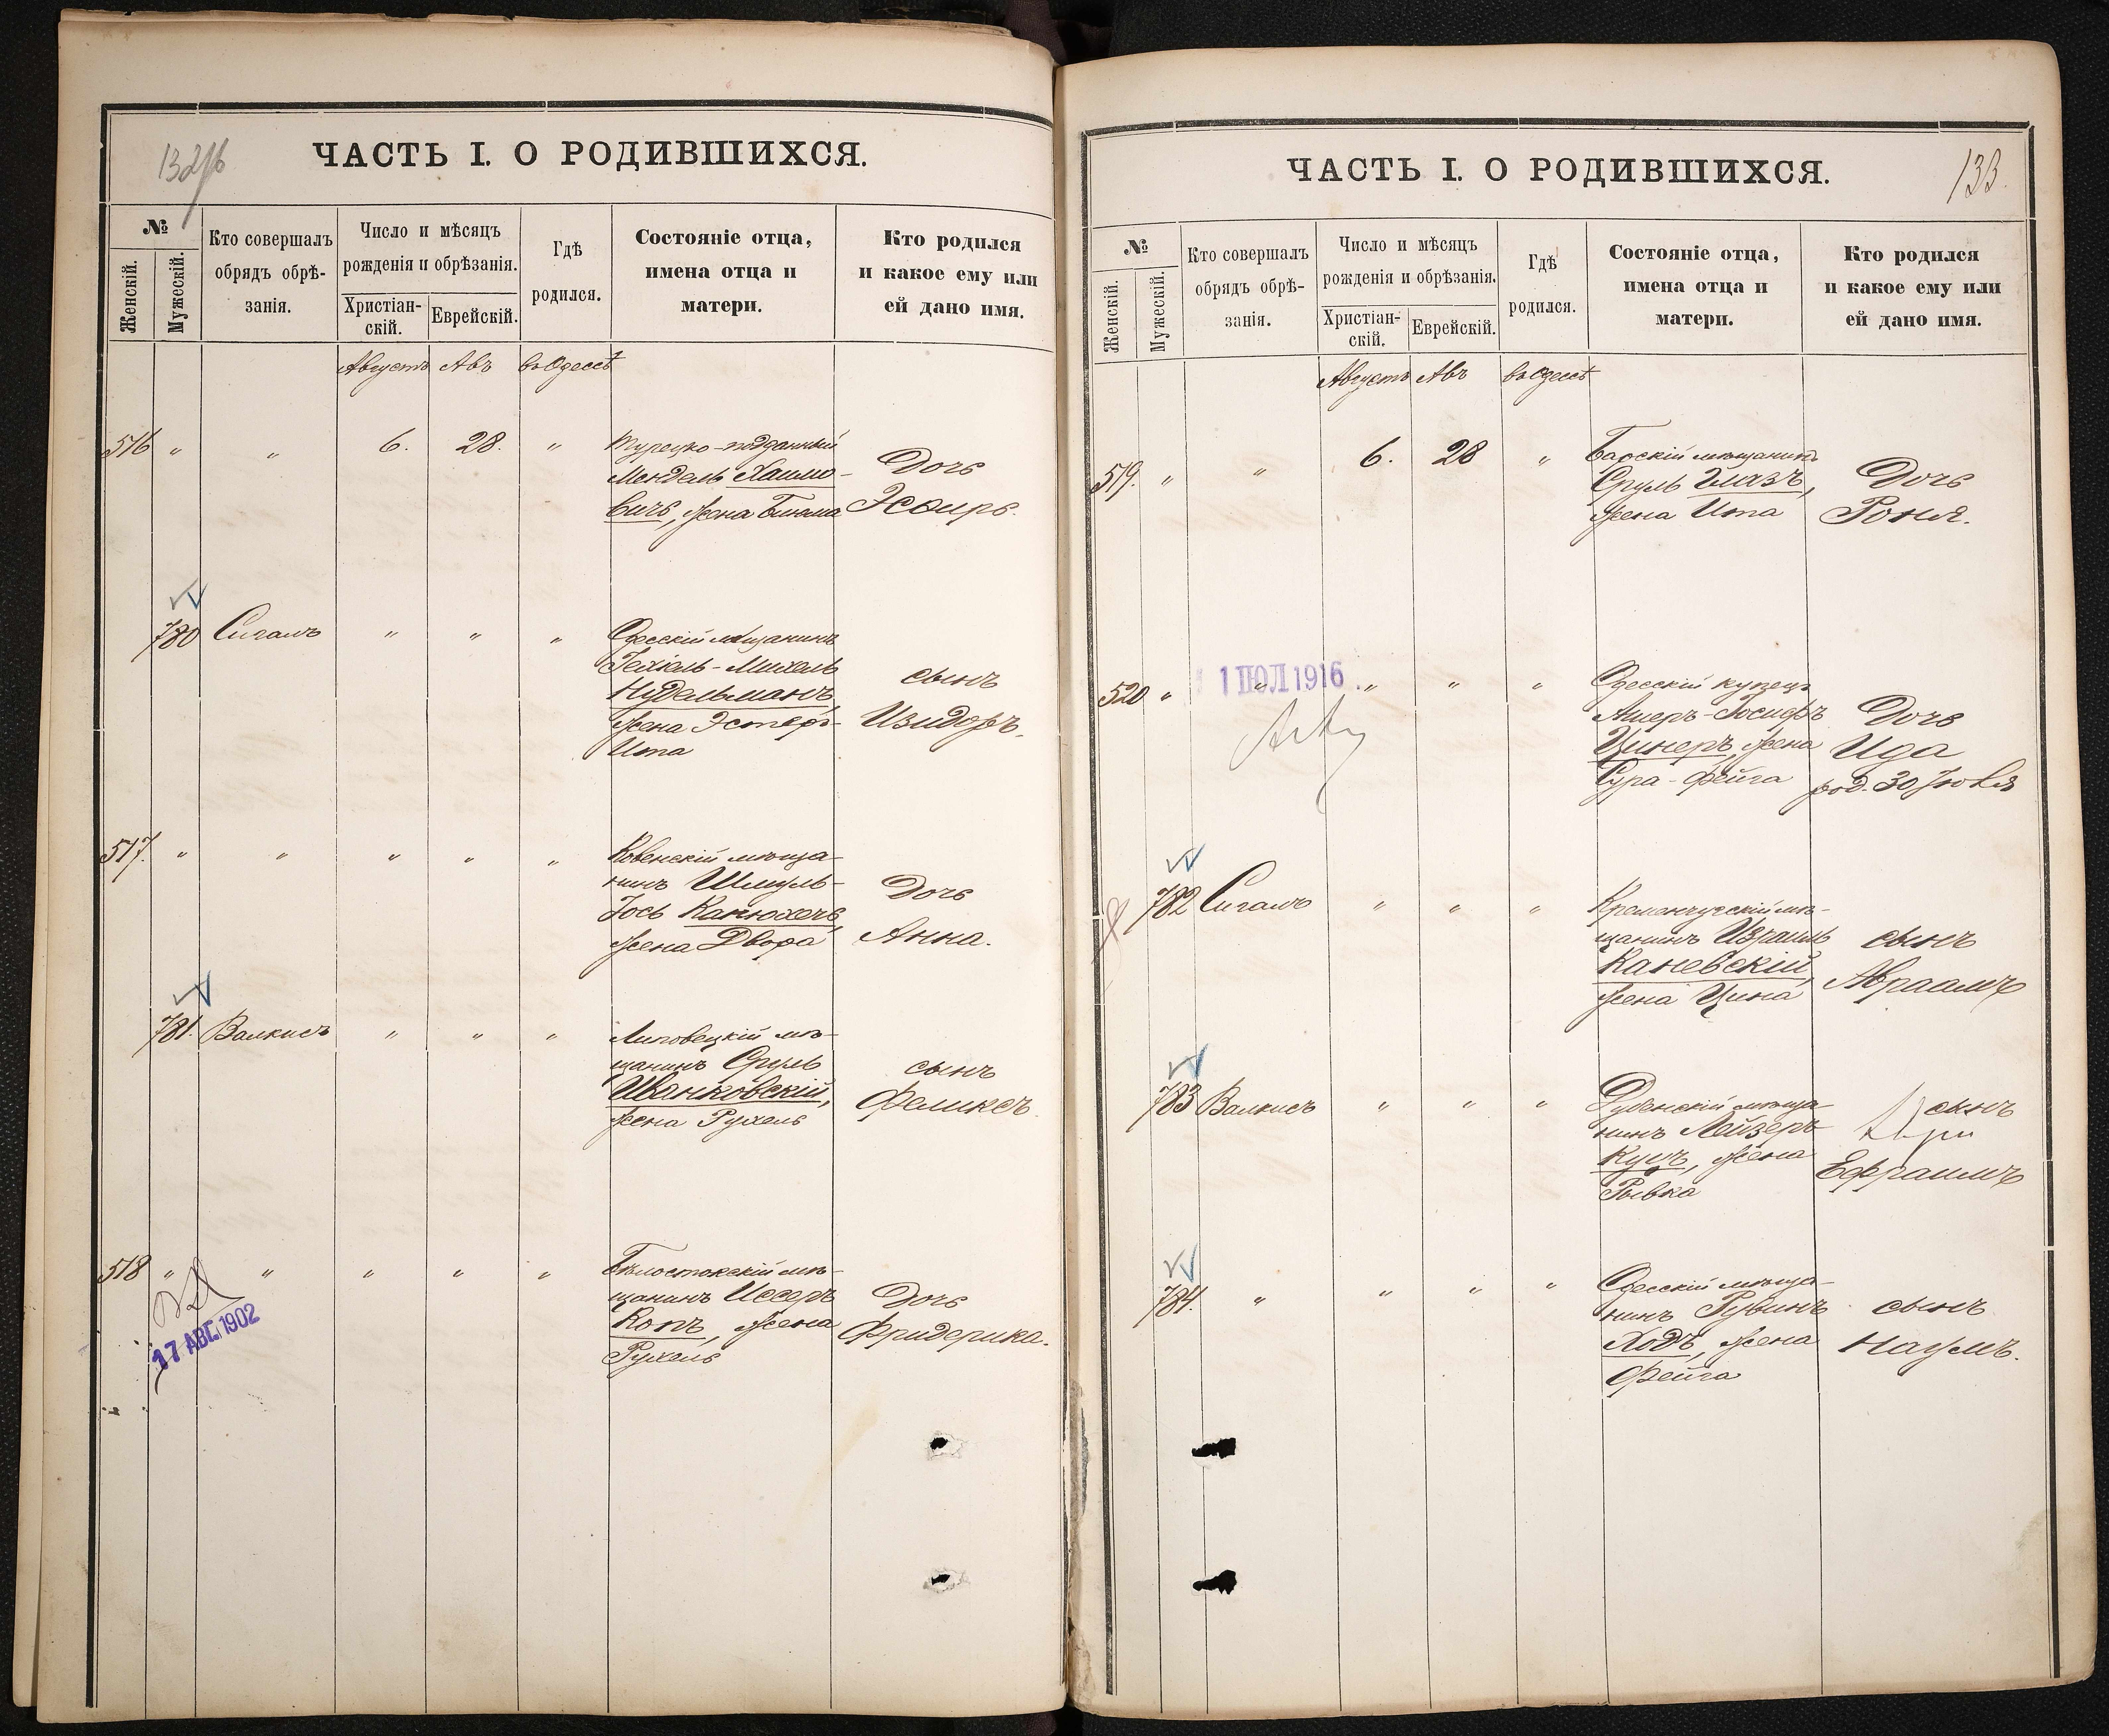 132/об
ЧАСТЬ I. О РОДИВШИХСЯ.
№
Женскій.
Мужескій.
Кто совершалъ
обрядъ обрѣ-
занія.
Число и мѣсяцъ
рожденія и обрѣзанія.
Христіан-
скій.
Еврейскій.
Гдѣ
родился.
Состояніе отца,
имена отца и
матери.
Кто родился
и какое ему или
ей дано имя.
Августъ Авъ въ Одессѣ
516 " " 6. 28. "
Турецко-подданный
Мендель Хаимо-
вичъ, жена Бинома
Дочь
Эсѳирь.
780 Сигалъ " " "
Одесскій мѣщанинъ
Іехіель-Михель
Нудельманъ,
жена Эстеръ-
Ита
сынъ
Изидоръ.
517. " " " " "
Ковенскій мѣща-
нинъ Шмуль-
Іось Канюхесъ,
жена Двора
Дочь
Анна.
781. Валкисъ " " "
Липовецкій мѣ-
щанинъ Сруль
Иванковскій,
жена Рухель
сынъ
Феликсъ.
518 " " " " "
17 АВГ. 1902
Бѣлостокскій мѣ-
щанинъ Иссеръ
Копъ, жена
Рухель
Дочь
Фридерика.
133.
ЧАСТЬ I. О РОДИВШИХСЯ.
№
Женскій.
Мужескій.
Кто совершалъ
обрядъ обрѣ-
занія.
Число и мѣсяцъ
рожденія и обрѣзанія.
Христіан-
скій.
Еврейскій.
Гдѣ
родился.
Состояніе отца,
имена отца и
матери.
Кто родился
и какое ему или
ей дано имя.
Августъ Авъ въ Одессѣ
519. " " 6. 28 "
Барскій мѣщанинъ
Сруль Глазъ,
жена Ита
Дочь
Роня.
520 " " " " "
1 ІЮЛ 1916
Одесскій купецъ
Ашеръ-Іосифъ
Цинеръ, жена
Сура-Фейга
Дочь
Ида
род. 30 Іюля
782 Сигалъ " " "
Кременчугскій мѣ-
щанинъ Израиль
Каневскій,
жена Цина
сынъ
Авраамъ
783 Валкисъ " " "
Дубенскій мѣща-
нинъ Лейзеръ
Куцъ, жена
Рывка
сынъ
Ефраимъ
784. " " " "
Одесскій мѣща-
нинъ Рувинъ
Ходъ, жена
Фейга
сынъ
Наумъ.